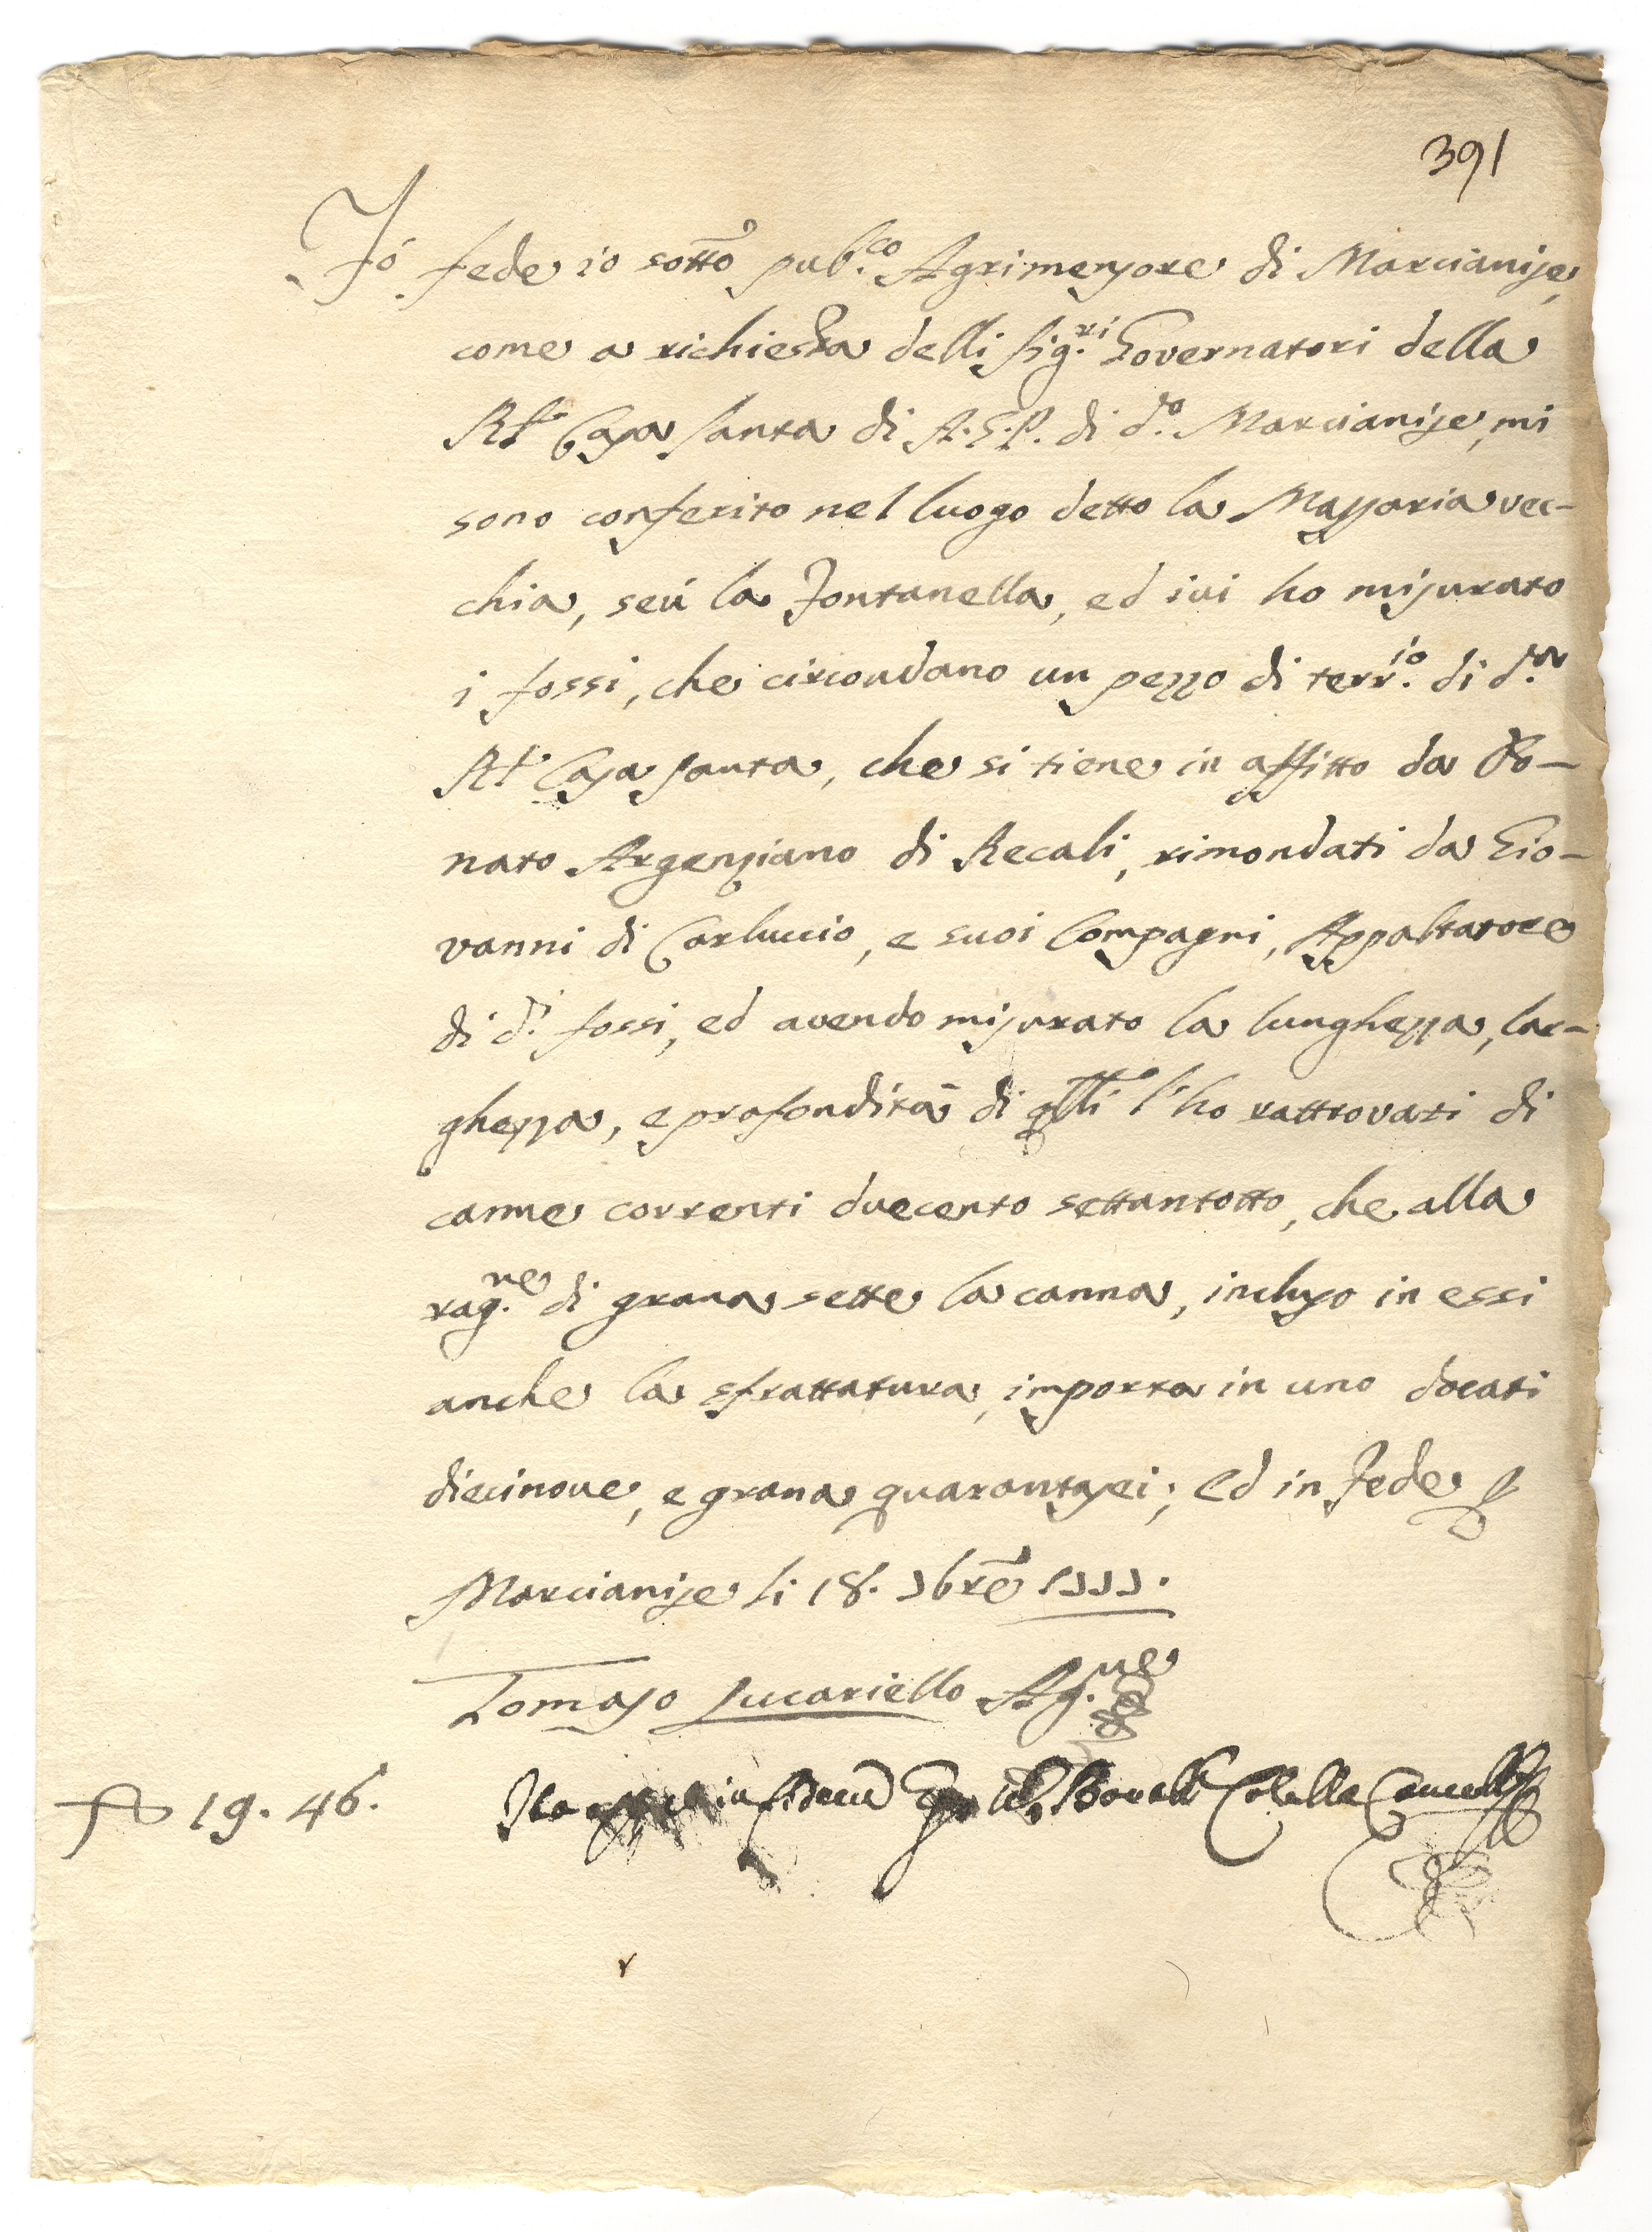 391
Fo fede io sotto pub.co Agrimensore di Marcianise,
come a richiesta delli Sig.ri Governatori della
Rl Casa Santa di A.G.P. di d.o Marcianise, mi
sono conferito nel luogo detto la Massaria vec-
chia, seú la Fontanella, ed ivi ho misurato
i fossi, che circondano un pezzo di terr.io di d.ta
Rl Casa Santa, che si tiene in affitto da Do-
nato Argenziano di Recali, rimondati da Gio-
vanni di Carluccio, e suoi Compagni, Appaltatore
di d.i fossi, ed avendo misurato la lunghezza, lar-
ghezza, e profondità di qlli l'ho rattrovati di
canne correnti duecento settantotto, che alla
rag.ne di grana sette la canna, incluso in essi
anche la sfrattatura, importa in uno docati
diecinove, e grana quarantasei; Ed in fede
Marcianise li 18. 7bre 1777.
Tomaso Lucariello Ag.re
19. 46.
Ita in fidem Colella Cancell